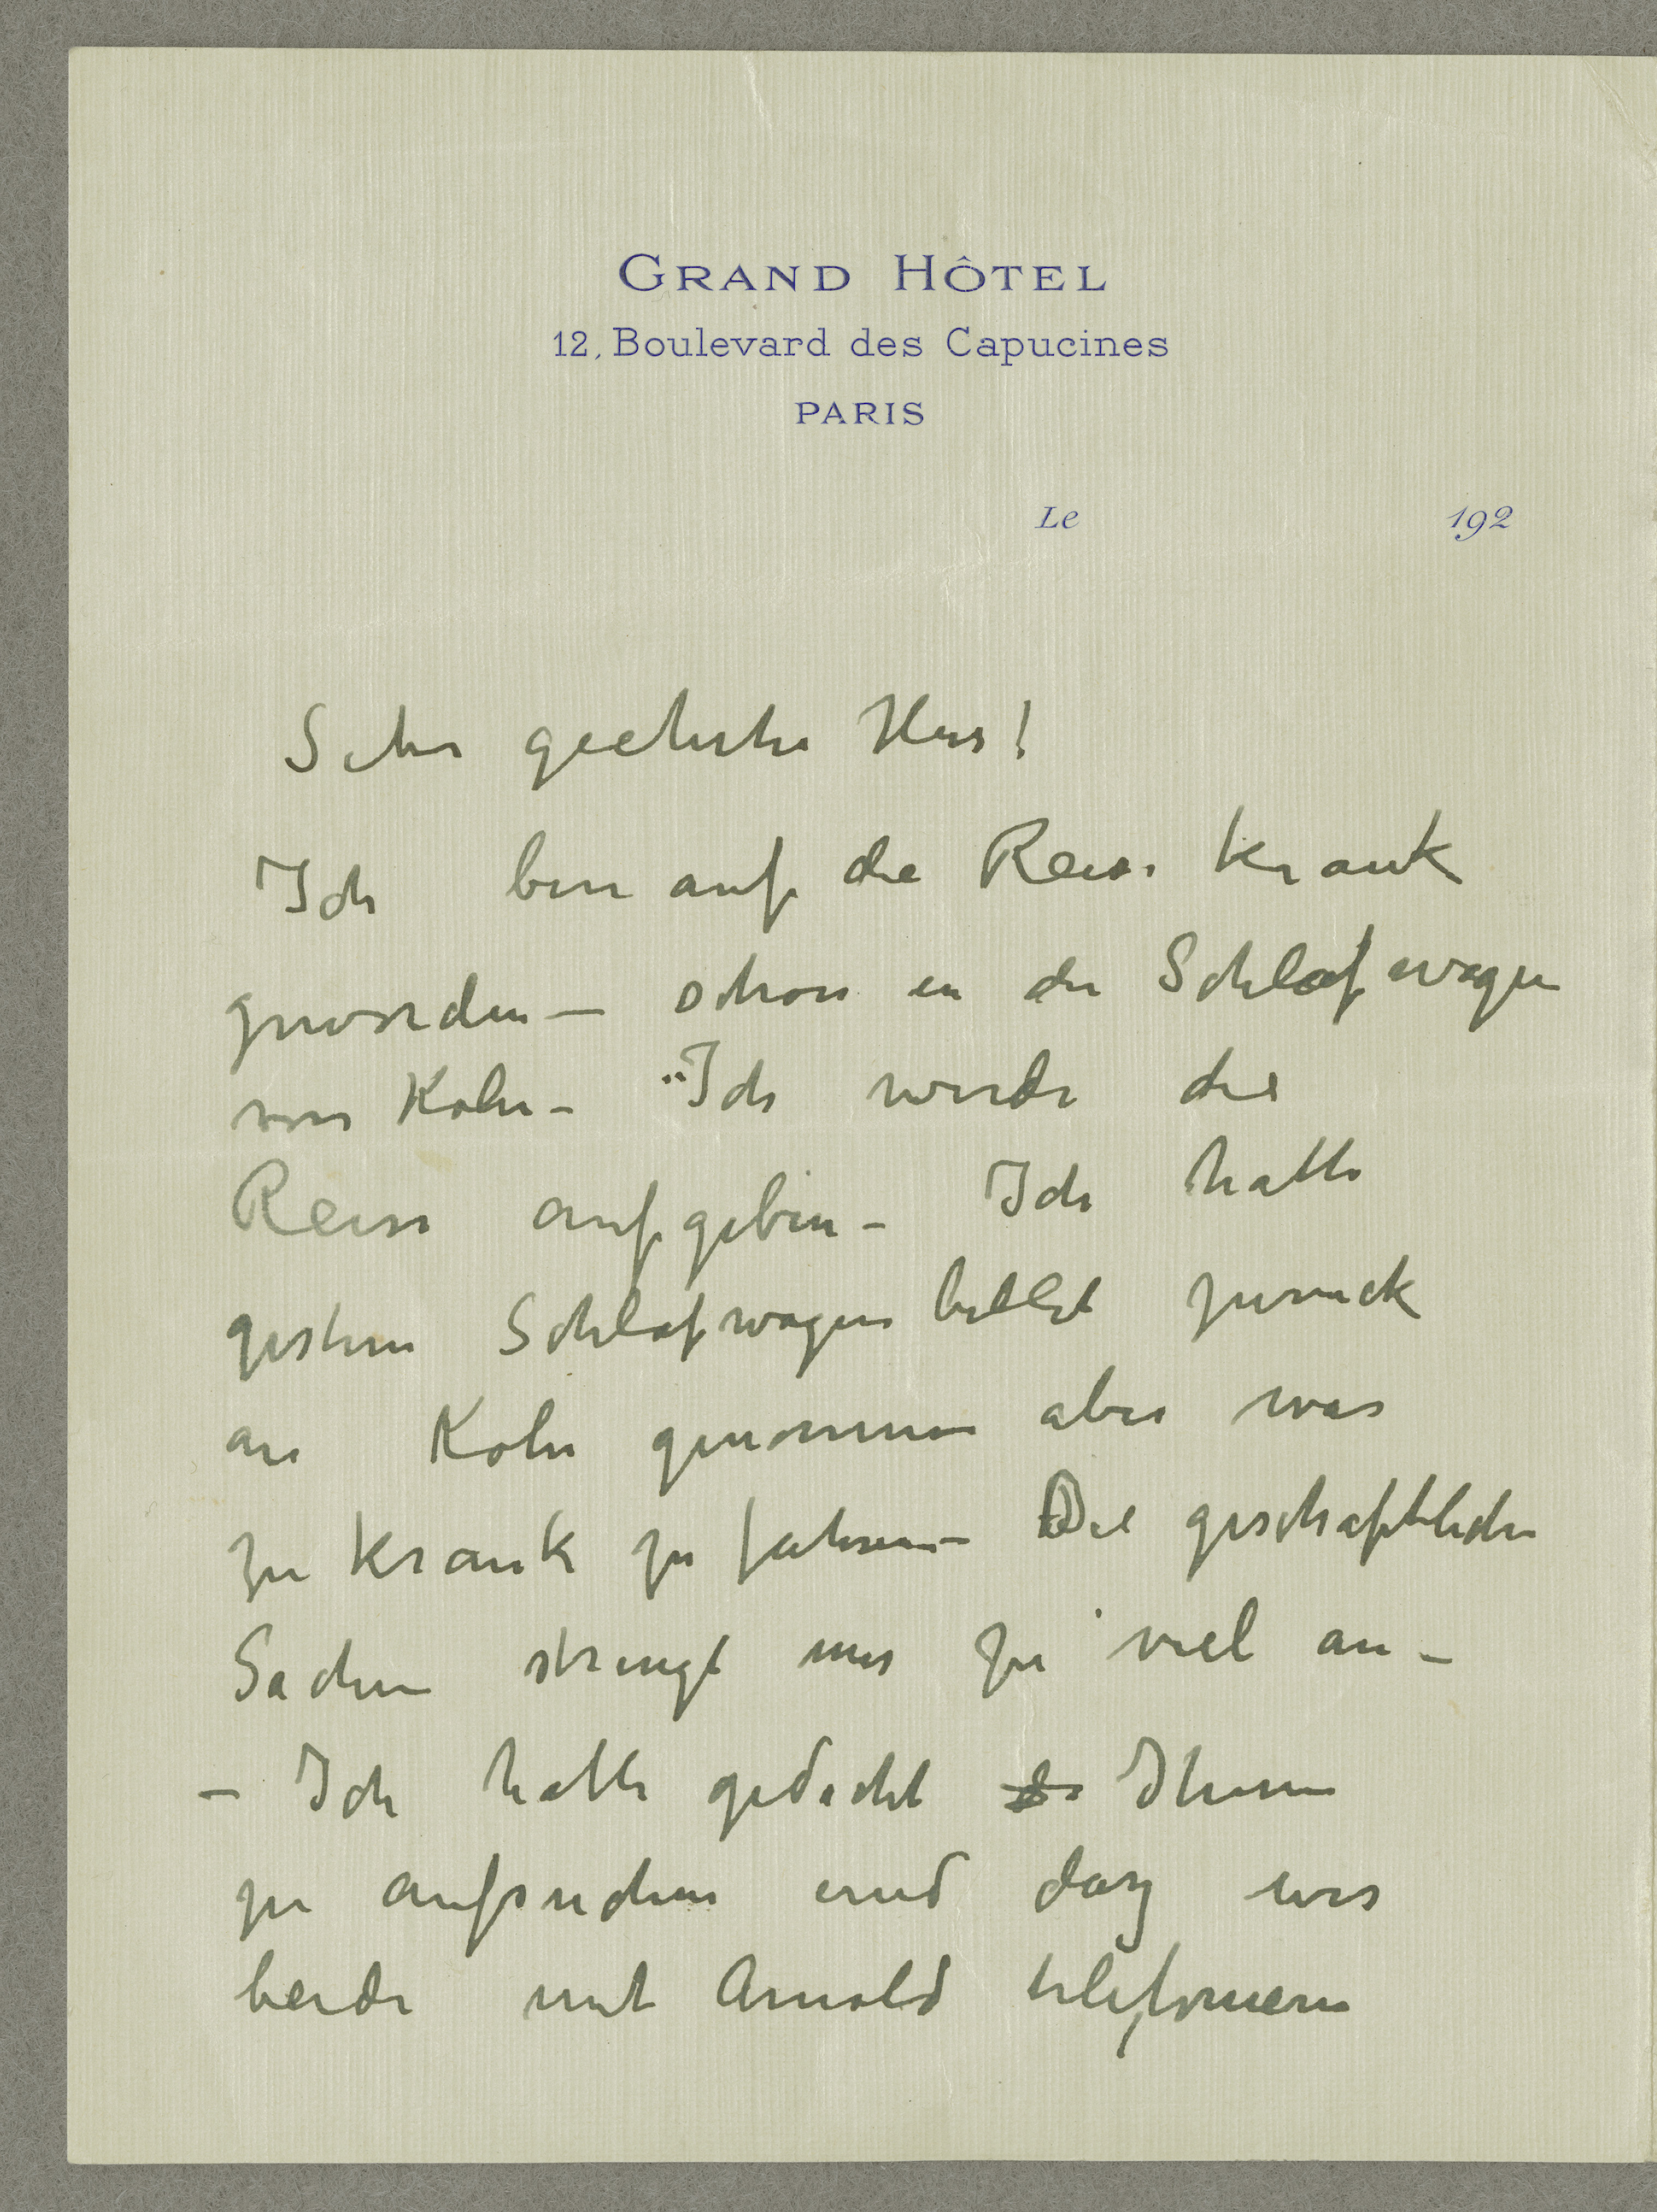 GRAND HÔTEL
12, Boulevard des Capucines
PARIS
Le 192
Sehr geehrte Herr!
Ich bin auf die Reise krank
geworden – schon in der Schlafwagen
von Koln – Ich werde die
Reise aufgeben – Ich hatte
gestern Schlafwagenbillet zuruck
an Koln genommen aber war
zu krank zu fahren – Die geschaftlichen
Sachen strengt mir zu viel an –
– Ich hatte gedacht Ihnen
zu aufsuchen und dasz wir
beide mit Arnold telefonieren